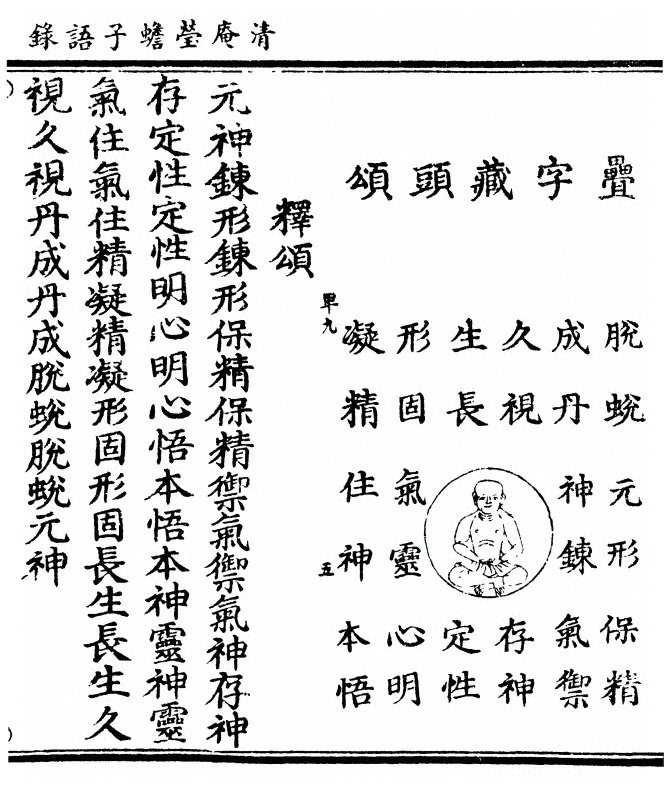 清庵瑩蟾子語錄
疊字藏頭頌
脫蛻元形保精
成丹神鍊氣禦
久視存神
生長定性
形固氣靈心明
凝精住神本悟
九
五
釋頌
元神鍊形鍊形保精保精禦氣禦氣神存神
存定性定性明心明心悟本悟本神靈神靈
氣住氣住精凝精凝形固形固長生長生久
視久視丹成丹成脫蛻脫蛻元神